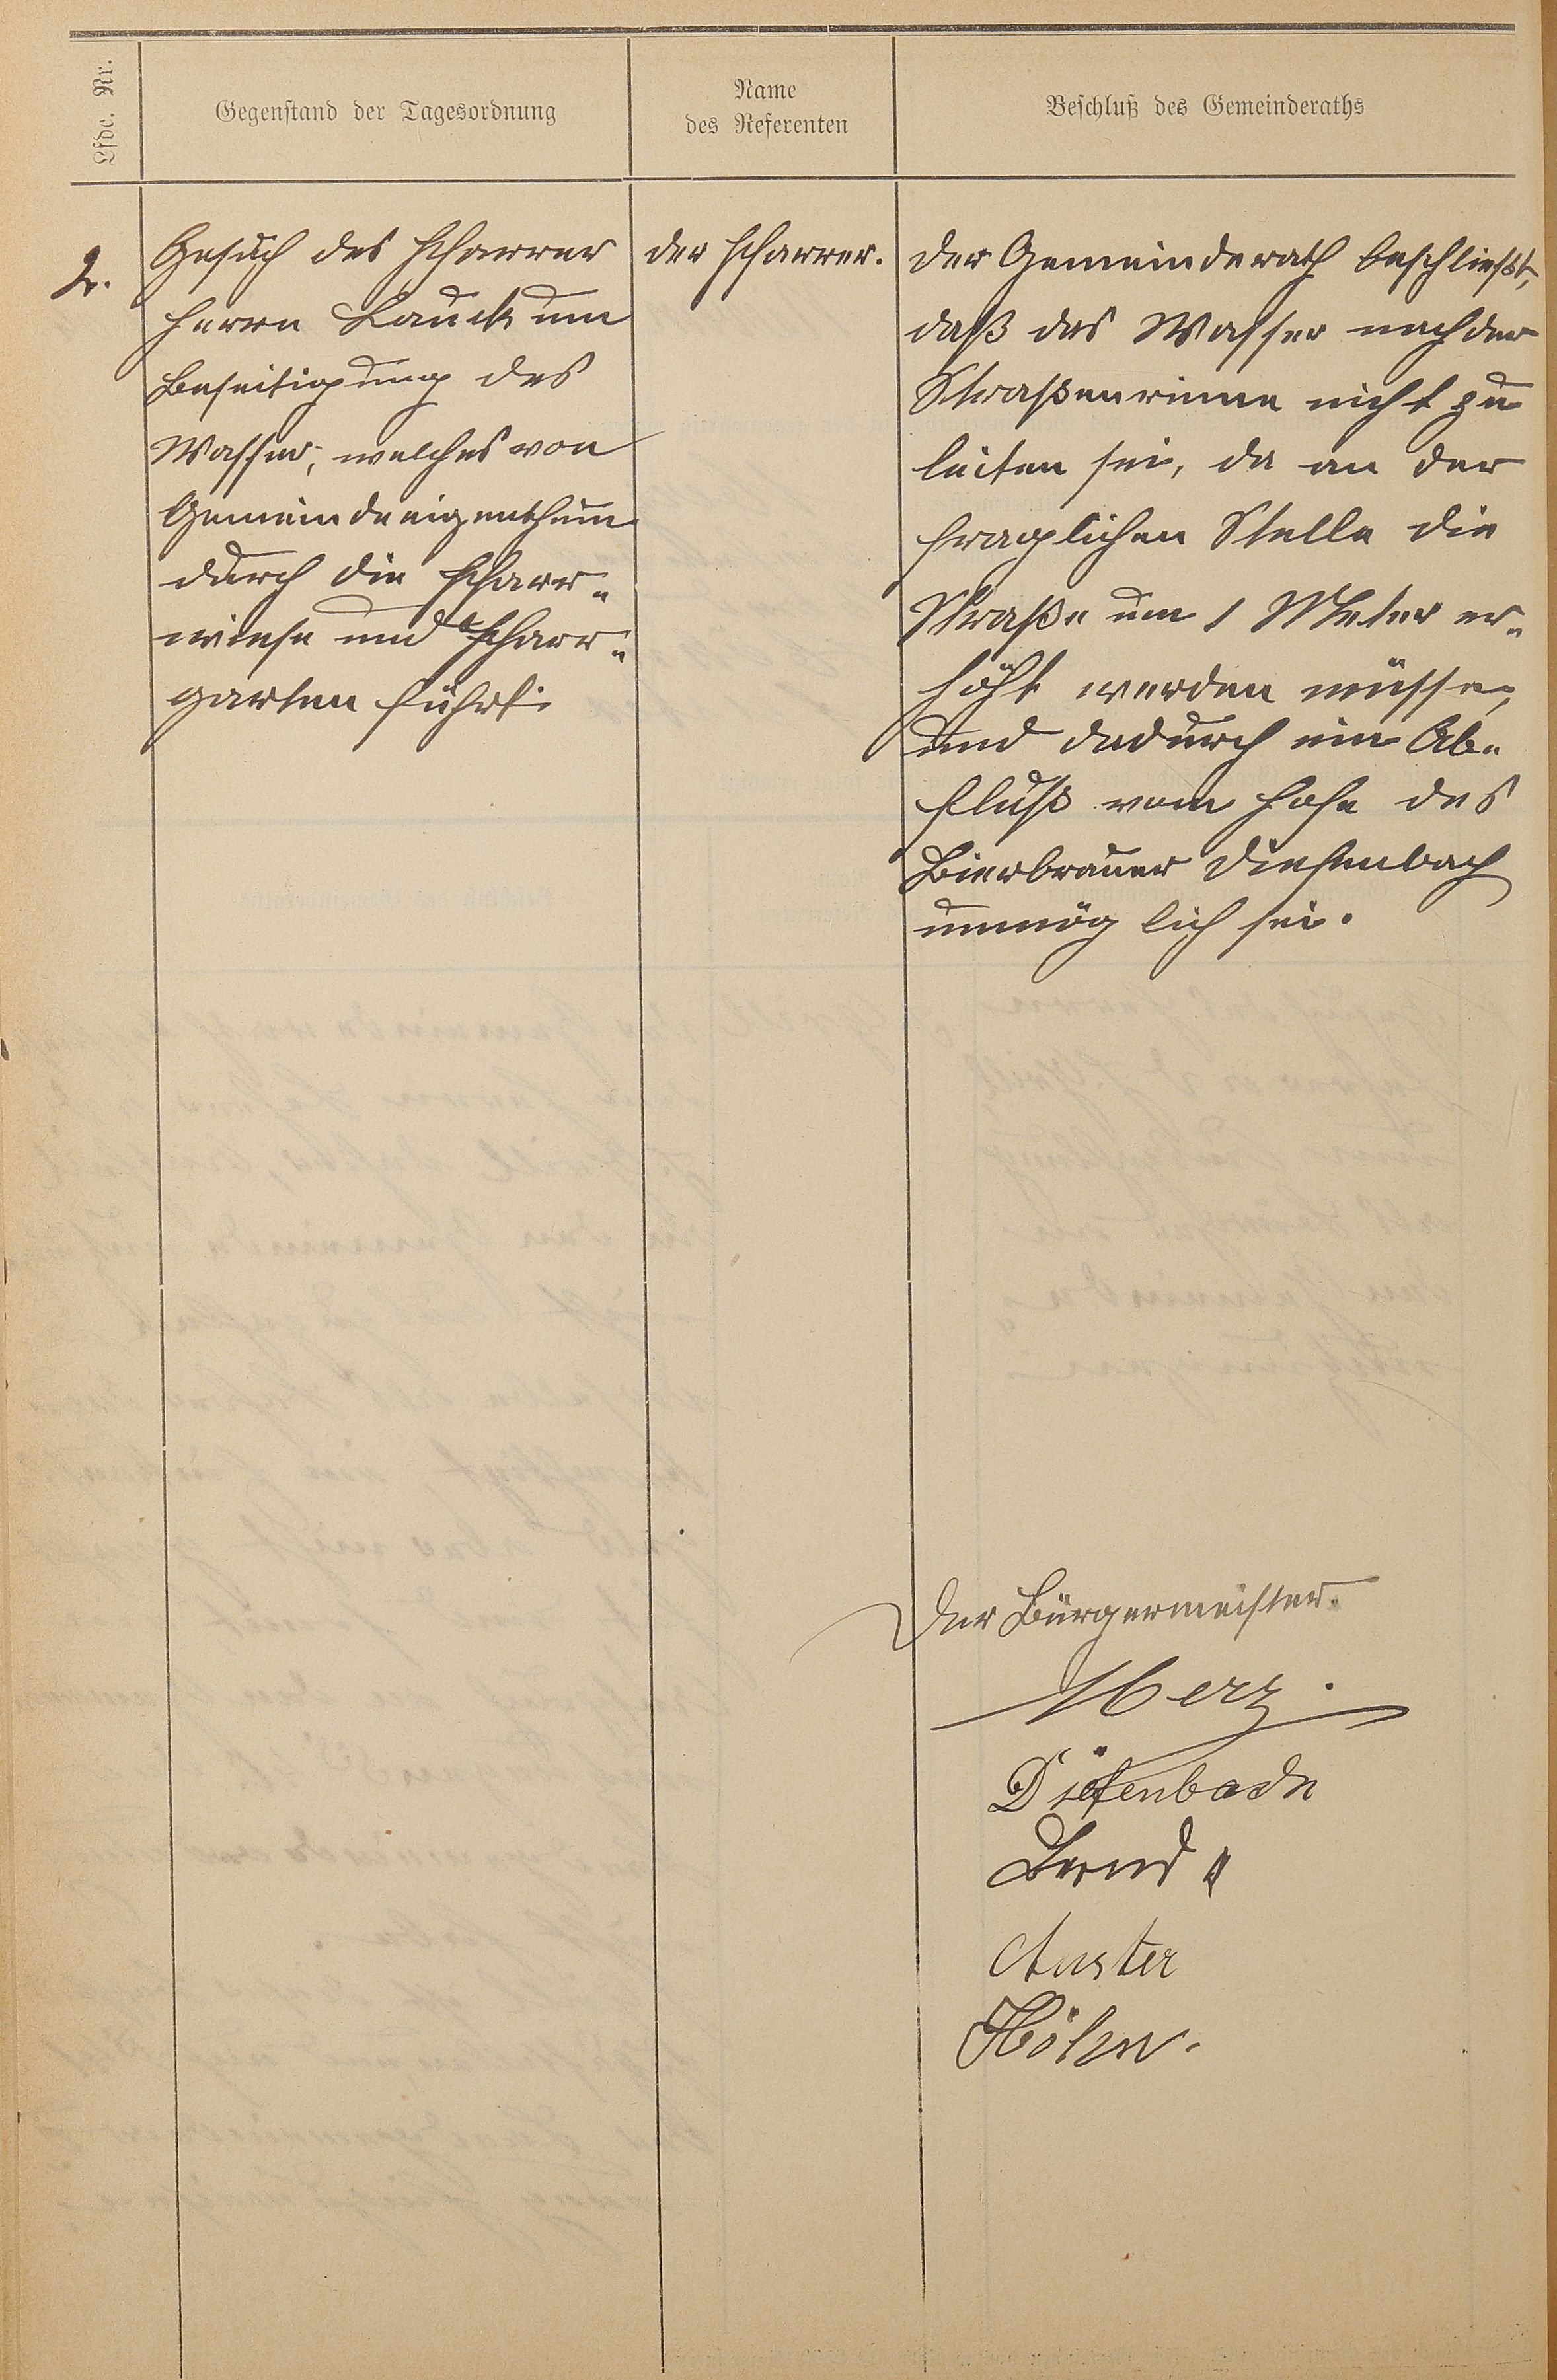 Lfde. Nr.
Gegenstand der Tagesordnung
Name
des Referenten
Beschluß des Gemeinderaths
2.
Gesuch des Pfarrer
Herrn Lauck um
Beseitigung des
Wasser, welches von
Gemeindeeigenthum
durch die Pfarr-
wiese und Pfarr-
garten führt.
der Pfarrer.
der Gemeinderath beschließt,
daß das Wasser nach der
Straßenrinne nicht zu
leiten sei, da an der
fraglichen Stelle die
Straße um 1 Meter er-
höht werden müsse,
und dadurch ein Ab-
fluß vom Hofe des
Bierbrauer Diefenbach
unmöglich sei.
Der Bürgermeister.
Merz.
Diefenbach
Bernd
Anster
Höhn.